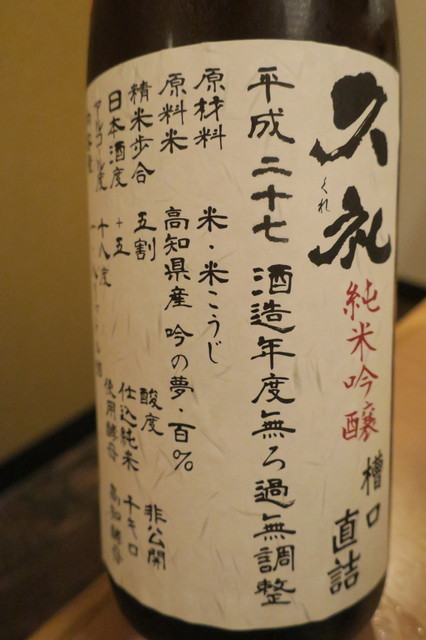 久礼
くれ
純米吟醸
槽口
直詰
平成二十七酒造年度無ろ過無調整
原材料 米・米こうじ
原料米 高知県産 吟の夢・百%
精米歩合 五割 酸度 非公開
日本酒度 +五 仕込純米 千キロ
アルコール度 十八度 使用酵母 高知酵母